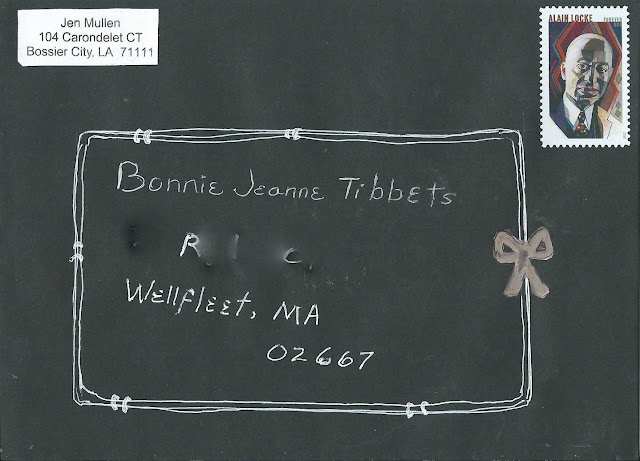 Jen Mullen
104 Carondelet CT
Bossier City, LA 71111
ALAIN LOCKE
FOREVER
Bonnie Jeanne Tibbets
Wellfleet, MA
02667